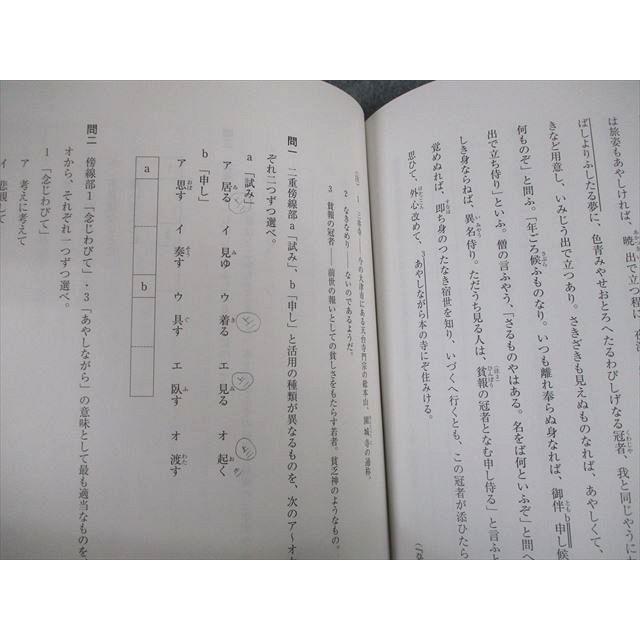 は旅姿もあやしければ、暁出で立つ程に、
ばしよりふしたる夢に、色青みやせおとろへたるわびしげなる冠者、我と同じやうに
きなど用意し、いみじう出で立つあり。さきざきも見えぬものなれば、あやしくて、
何ものぞ」と問ふ。「年ごろ候ふものなり。いつも離れ奉らぬ身なれば、御伴b申し候
出で立ち侍り」といふ。僧の言ふやう、「さるものやはある。名をば何といふぞ」と問へ
しき身ならねば、異名侍り。ただうち見る人は、貧報の冠者となむ申し侍る」と言ふと
覚めぬれば、即ち身のつたなき宿世を知り、いづくへ行くとも、この冠者が添ひたら
思ひて、外心改めて、3あやしながら本の寺にぞ住みける。
(注) 1 三井寺――今の大津市にある天台寺門宗の総本山、園城寺の通称。
2 なきなめり――ないのであるようだ。
3 貧報の冠者――前世の報いとしての貧しさをもたらす若者。貧乏神のようなもの。
問一 二重傍線部a「試み」、b「申し」と活用の種類が異なるものを、次のア〜オか
ぞれ二つずつ選べ。
a「試み」
ア 居る イ 見ゆ ウ 着る エ 見る オ 起く
b「申し」
ア 思す イ 奏す ウ 具す エ 臥す オ 渡す
a b
問二 傍線部1「念じわびて」・3「あやしながら」の意味として最も適当なものを、
オから、それぞれ一つずつ選べ。
1「念じわびて」
ア 考えに考えて
イ 悲観して